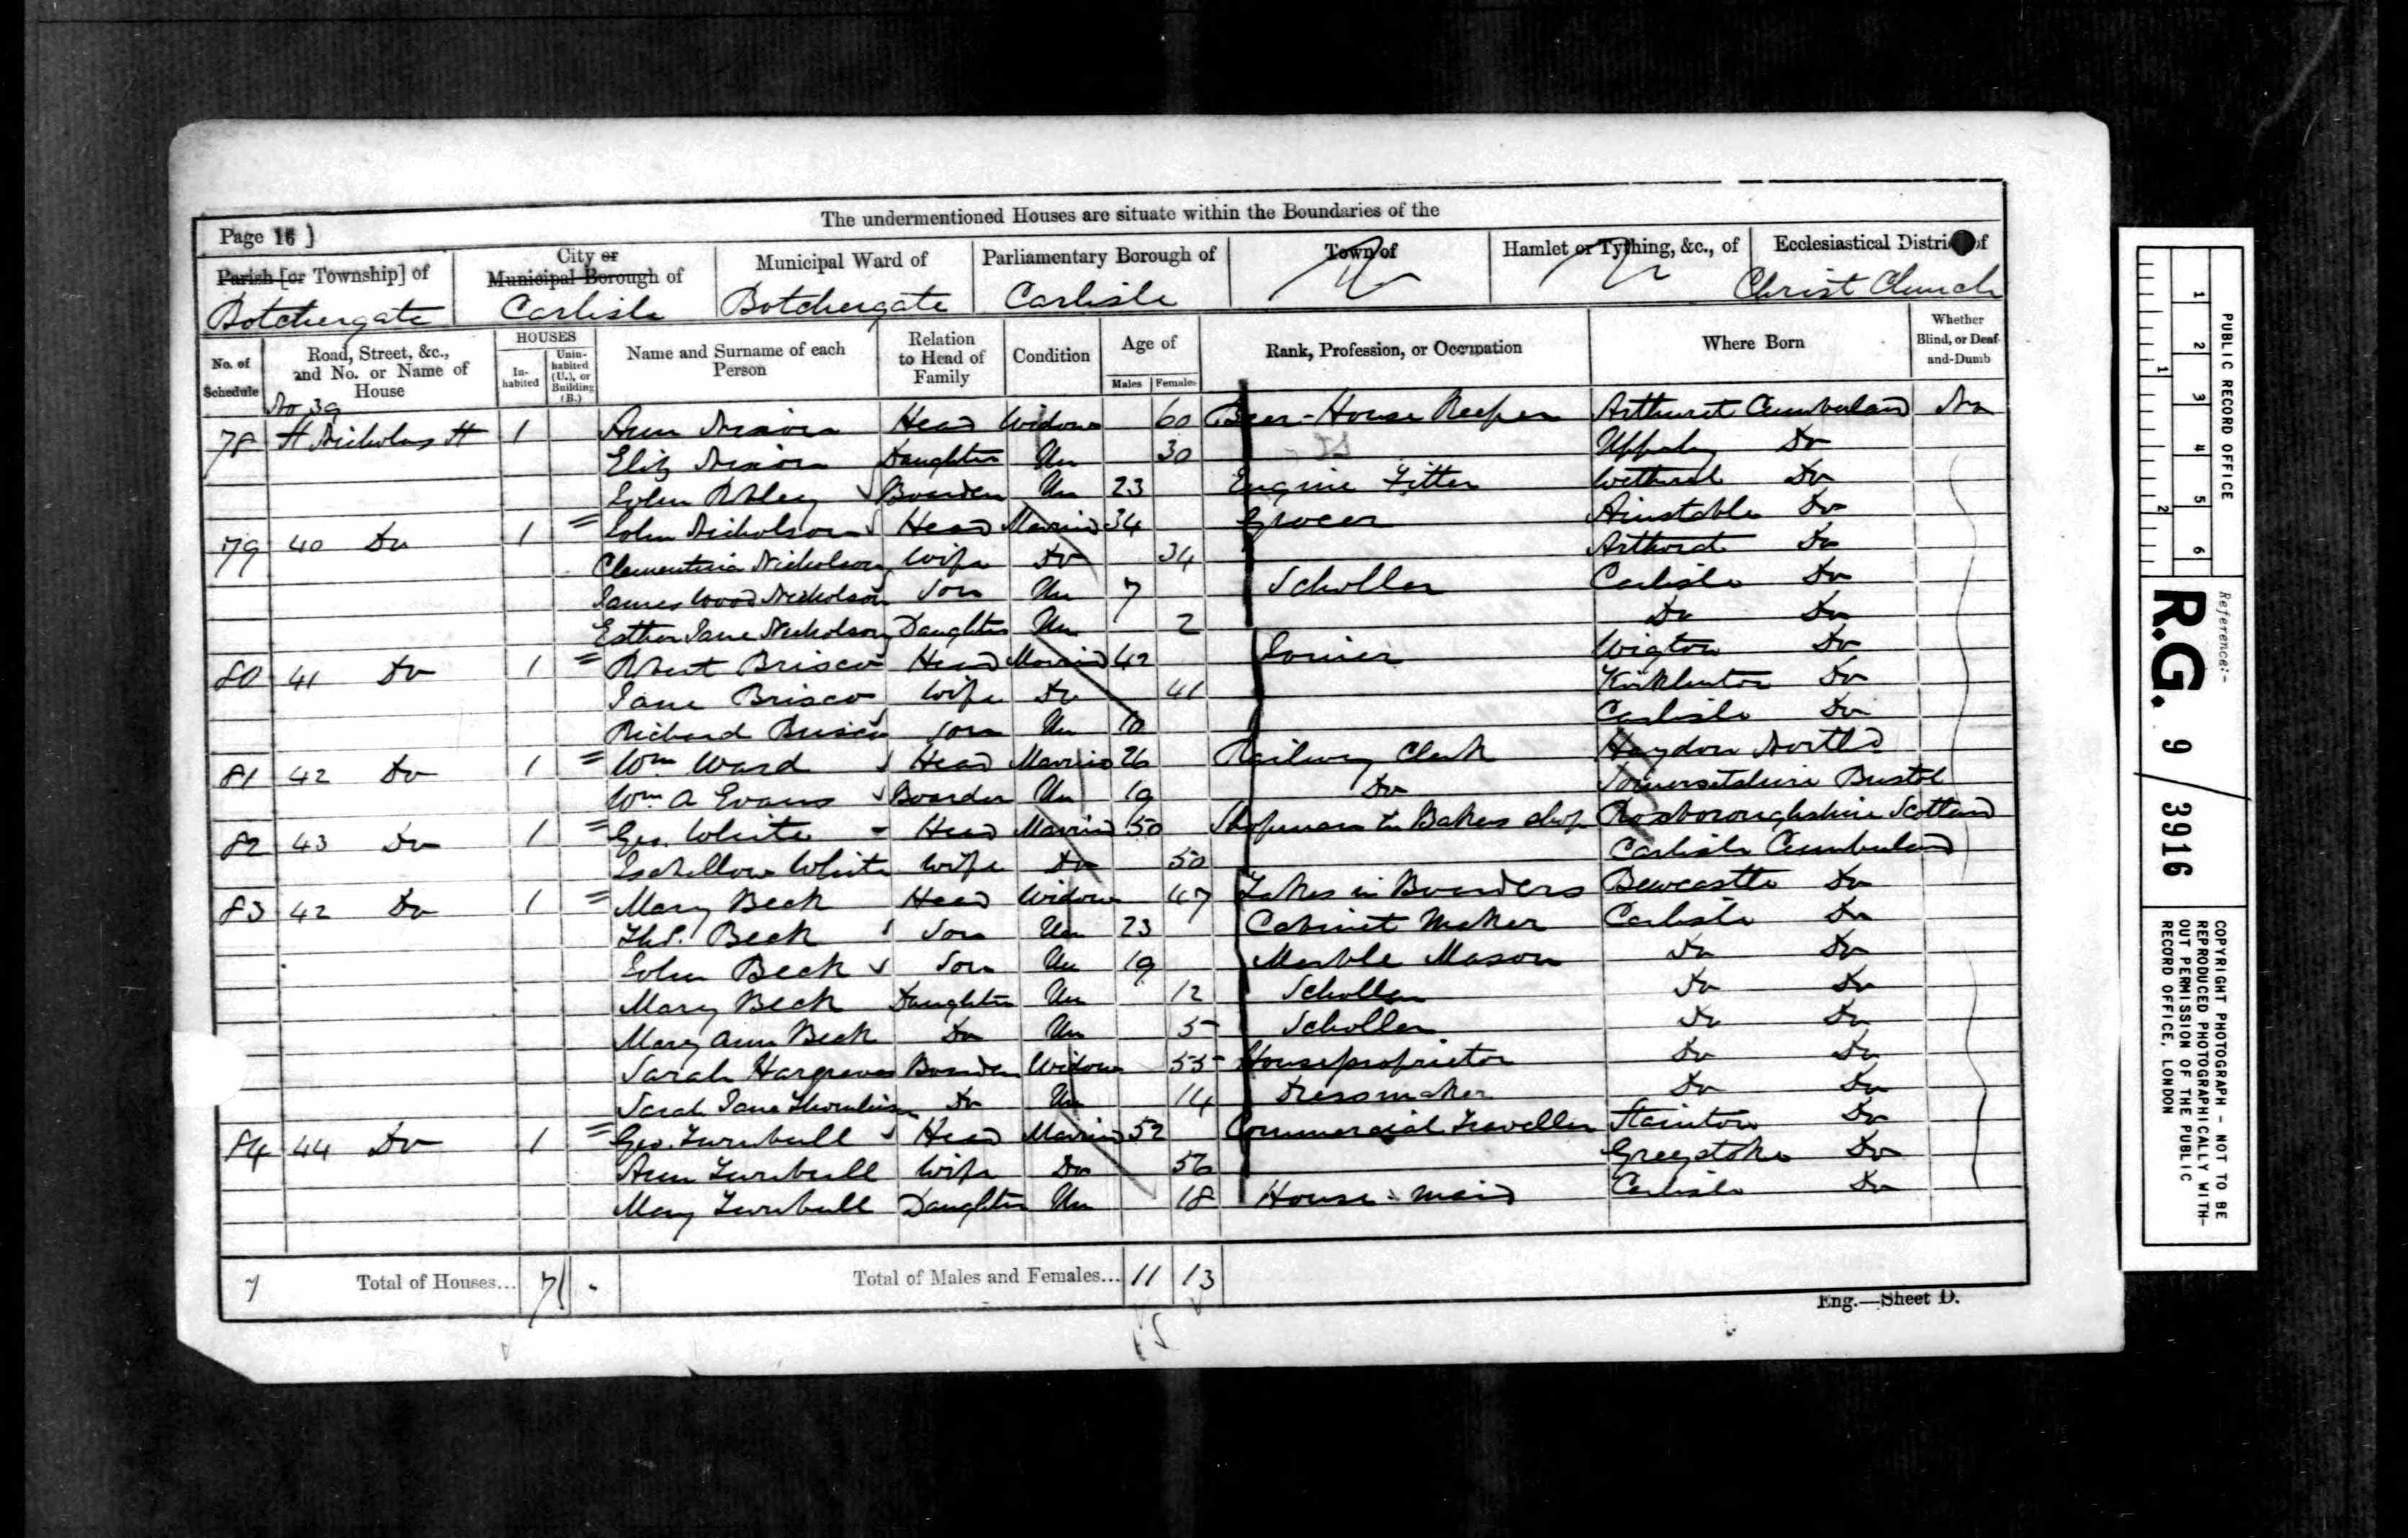 The undermentioned Houses are situate within the Boundaries of the
Page 16 ]
Parish [or Township] of
City or Municipal Borough of
Municipal Ward of
Parliamentary Borough of
Town of
Hamlet or Tything, &c., of
Ecclesiastical District of
Botchergate Carlisle Botchergate Carlisle Christ Church
No. of Schedule
Road, Street, &c., and No. or Name of House
HOUSES
In-habited
Unin-habited (U.), or Building (B.)
Name and Surname of each Person
Relation to Head of Family
Condition
Age of
Males Females
Rank, Profession, or Occupation
Where Born
Whether Blind, or Deaf-and-Dumb
No 39
78 St Nicholas St 1 Ann Nixon Head Widow 60 Beer-House Keeper Arthuret Cumberland
Eliz Nixon Daughter Un 30 Do
John Boarder Un 23 Engine Fitter Wetheral Do
79 40 Do 1 John Nicholson Head Married 34 Grocer Ainstable Do
Clementina Nicholson Wife Do 34 Do
James Wood Nicholson Son Un 7 Scholler Carlisle Do
Esther Jane Nicholson Daughter Un 2 Do Do
80 41 Do 1 Robert Brisco Head Married 42 Joiner Wigton Do
Jane Brisco Wife Do 41 Kirklinton Do
Richard Brisco Son Un 10 Carlisle Do
81 42 Do 1 Wm Ward Head Married 26 Railway Clerk Haydon Northd
Wm A Evans Boarder Un 19 Do Somersetshire Bristol
82 43 Do 1 Geo. White Head Married 50 Shopman in Bakers shop Roxboroughshire Scotland
White Wife Do 50 Carlisle Cumberland
83 42 Do 1 Mary Beck Head Widow 47 Takes in Boarders Bewcastle Do
Thos. Beck Son Un 23 Cabinet Maker Carlisle Do
John Beck Son Un 19 Marble Mason Do Do
Mary Beck Daughter Un 12 Scholler Do Do
Mary Ann Beck Do Un 5 Scholler Do Do
Sarah Hargreaves Boarder Widow 55 House proprietor Do Do
Sarah Jane Do Un 14 Dressmaker Do Do
84 44 Do 1 Geo. Turnbull Head Married 52 Commercial Traveller Stainton Do
Ann Turnbull Wife Do 56 Greystoke Do
Mary Turnbull Daughter Un 18 House-maid Carlisle Do
7 Total of Houses... 7 Total of Males and Females... 11 13
Eng.—Sheet D.
PUBLIC RECORD OFFICE
1 2 3 4 5 6
1 2
Reference:-
R.G. 9 / 3916
COPYRIGHT PHOTOGRAPH - NOT TO BE
REPRODUCED PHOTOGRAPHICALLY WITH-
OUT PERMISSION OF THE PUBLIC
RECORD OFFICE, LONDON